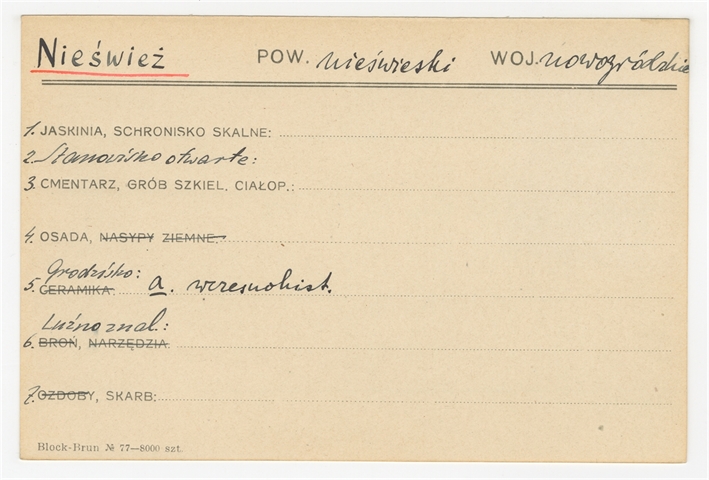 Nieśwież POW. nieświeski WOJ. nowogródzkie
1. JASKINIA, SCHRONISKO SKALNE:
2. Stanowisko otwarte:
3. CMENTARZ, GRÓB SZKIEL. CIAŁOP.:
4. OSADA, NASYPY ZIEMNE:
Grodzisko:
5. CERAMIKA: a. wczesnohist.
Luźno znal.:
6. BROŃ, NARZĘDZIA:
7. OZDOBY, SKARB:
Block-Brun № 77—8000 szt.